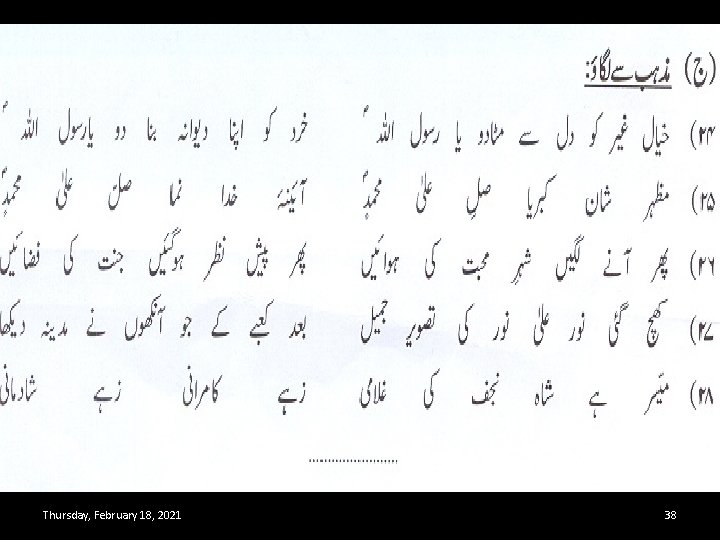 (ج) مذہب سے لگاؤ:
(۲۴ خیالِ غیر کو دل سے مٹادو یا رسول اللہؐ خرد کو اپنا دیوانہ بنا دو یارسول اللہؐ
(۲۵ مظہر شان کبریا صلِ علیٰ محمدٍؐ آئینۂ خدا نما صلِ علیٰ محمدٍؐ
(۲۶ پھر آنے لگیں شہرِ محبت کی ہوائیں پھر پیش نظر ہوگئیں جنت کی فضائیں
(۲۷ کھچ گئی نور علیٰ نور کی تصویرِ جمیل بعد کعبے کے جو آنکھوں نے مدینہ دیکھا
(۲۸ میسّر ہے شاہ نجف کی غلامی زہے کامرانی زہے شادمانی
........................
Thursday, February 18, 2021 38